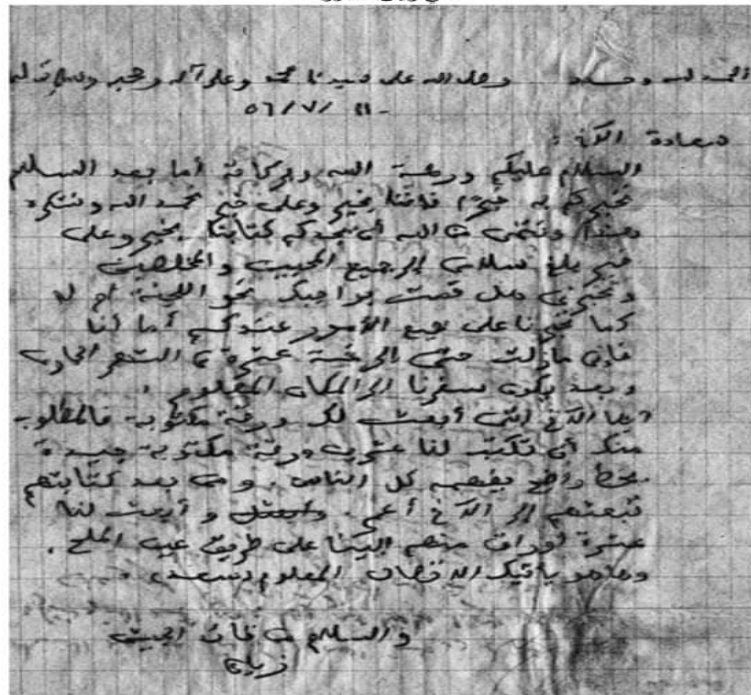 الحمد لله وحده وصلى الله على سيدنا محمد وعلى آله وصحبه وسلم
56/7/11 -
سعادة الأخ :
السلام عليكم ورحمة الله وبركاته أما بعد السلام
نخبركم به خيرا فإننا بخير وعلى خير نحمد الله ونشكره
هذا ونتمنى من الله أن يجدكم كتابنا بخير وعلى
خير بلغ سلامي إلى جميع المحبين والمخلصين
وتخبرني هل قمت بواجبك نحو اللجنة أم لا
كما تخبرنا على جميع الأمور عندكم أما أنا
فإني مازلت حتى إلى خمسة عشرة من الشهر الجاري
وبعد يكون سفرنا إلى المكان المعلوم .
أيها الأخ إنني أبعث لك ورقة مكتوبة فالمطلوب
منك أن تكتب لنا عشرين ورقة مكتوبة جيدة
بخط واضح يفهمه كل الناس . ومن بعد كتابتهم
تبعثهم إلى الأخ أعمر . وأبعث لنا
عشرة أوراق منهم إلينا على طريق عين الملح .
وها هو يأتيك المعلوم
والسلام من المحب
زيان